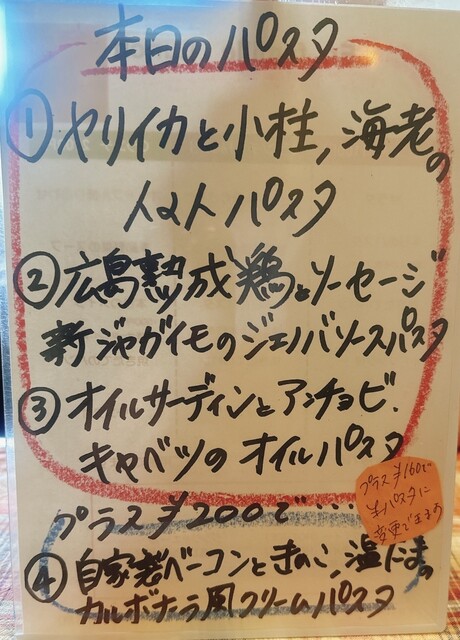 本日のパスタ
① ヤリイカと小柱, 海老の
パスタ
② 広島熟成鶏とソーセージ
新ジャガイモのジェノバソースパスタ
③ オイルサーディンとアンチョビ.
キャベツのオイルパスタ
プラス¥200で...
④ 自家製ベーコンときのこ, 温たまの
カルボナーラ風クリームパスタ
プラス¥160で
生パスタに
変更できます